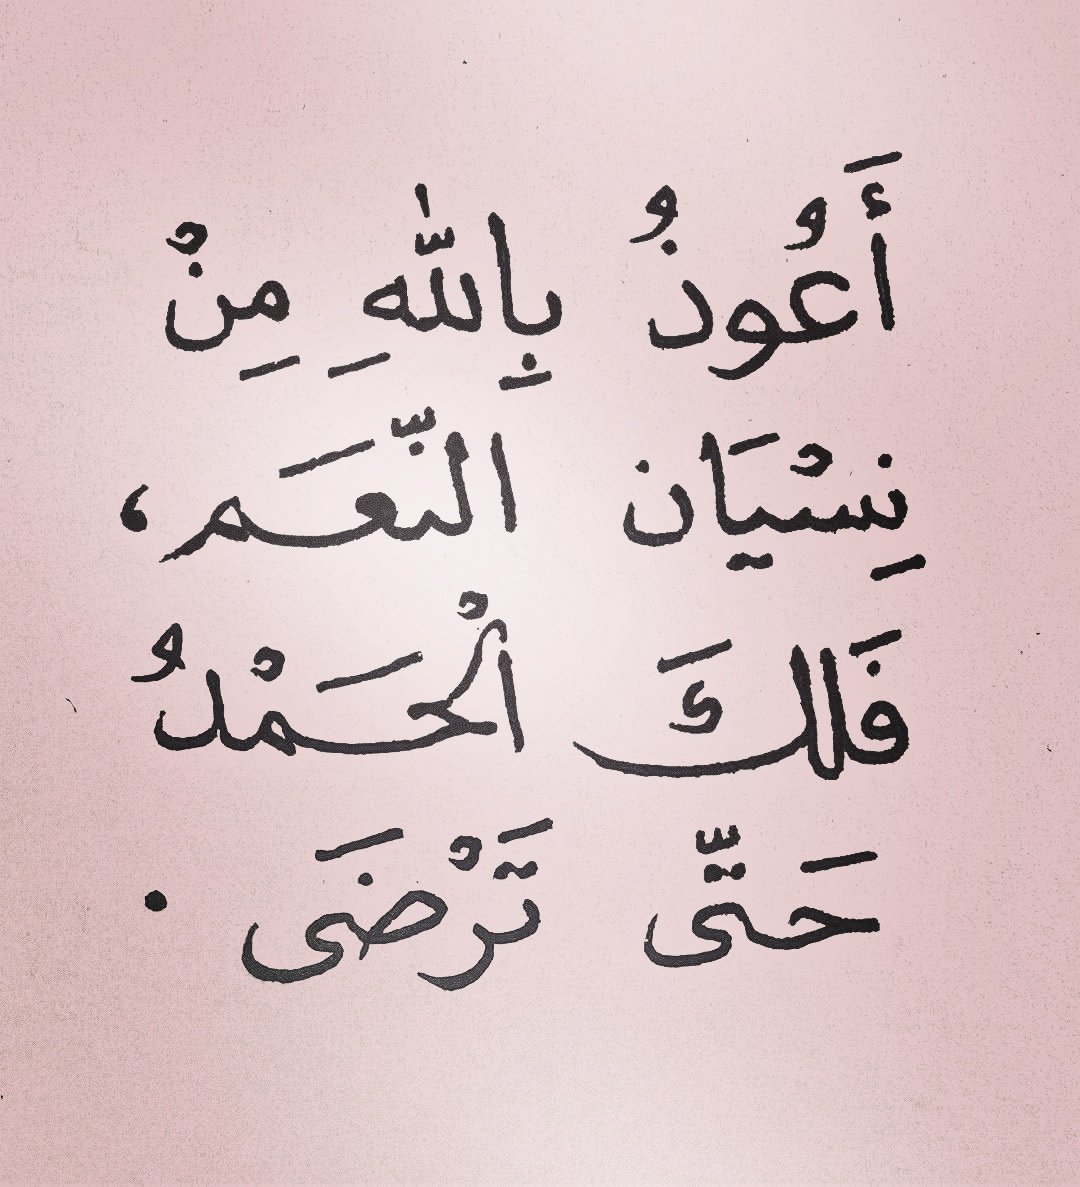 أَعُوذُ بِاللّٰهِ مِنْ
نِسْيَان النّعَم،
فَلَكَ الْحَمْدُ
حَتّى تَرْضَى .